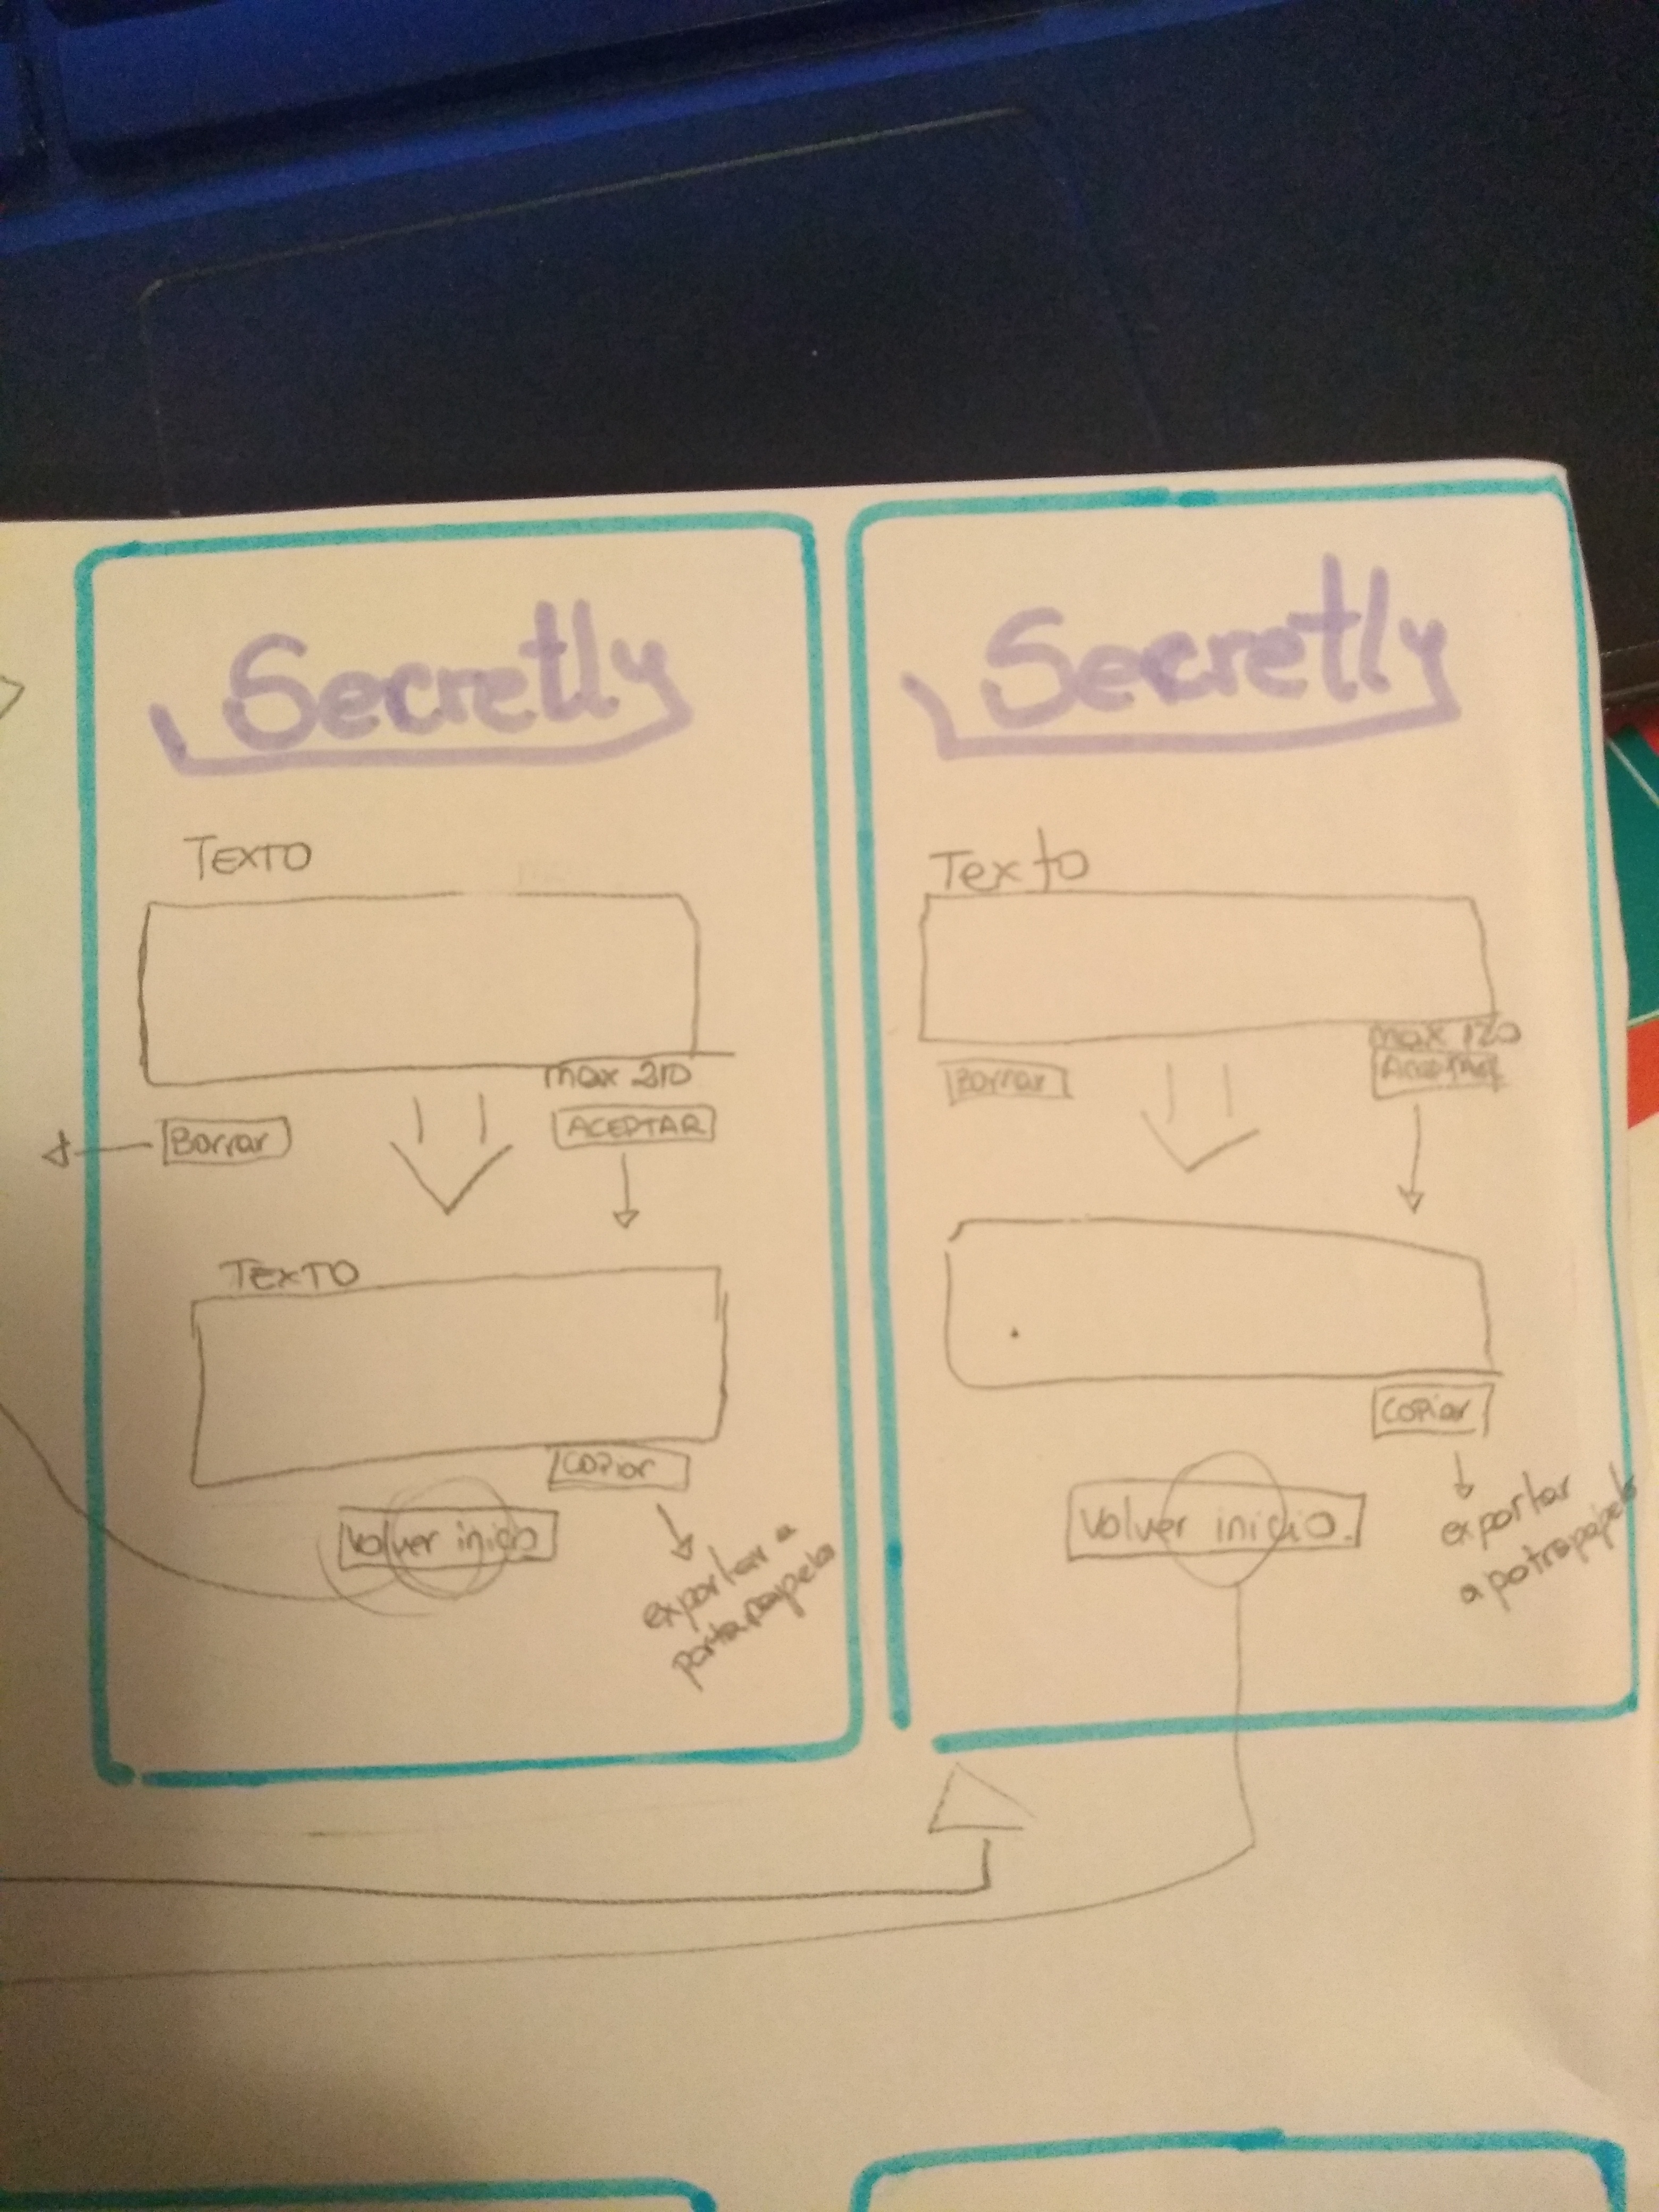 Secretly
TEXTO
max 210
Borrar
ACEPTAR
TEXTO
Copiar
Volver inicio
exportar a
portapapeles
Secretly
Texto
max 120
Borrar
Aceptar
Copiar
Volver inicio.
exportar
a potrapapeles